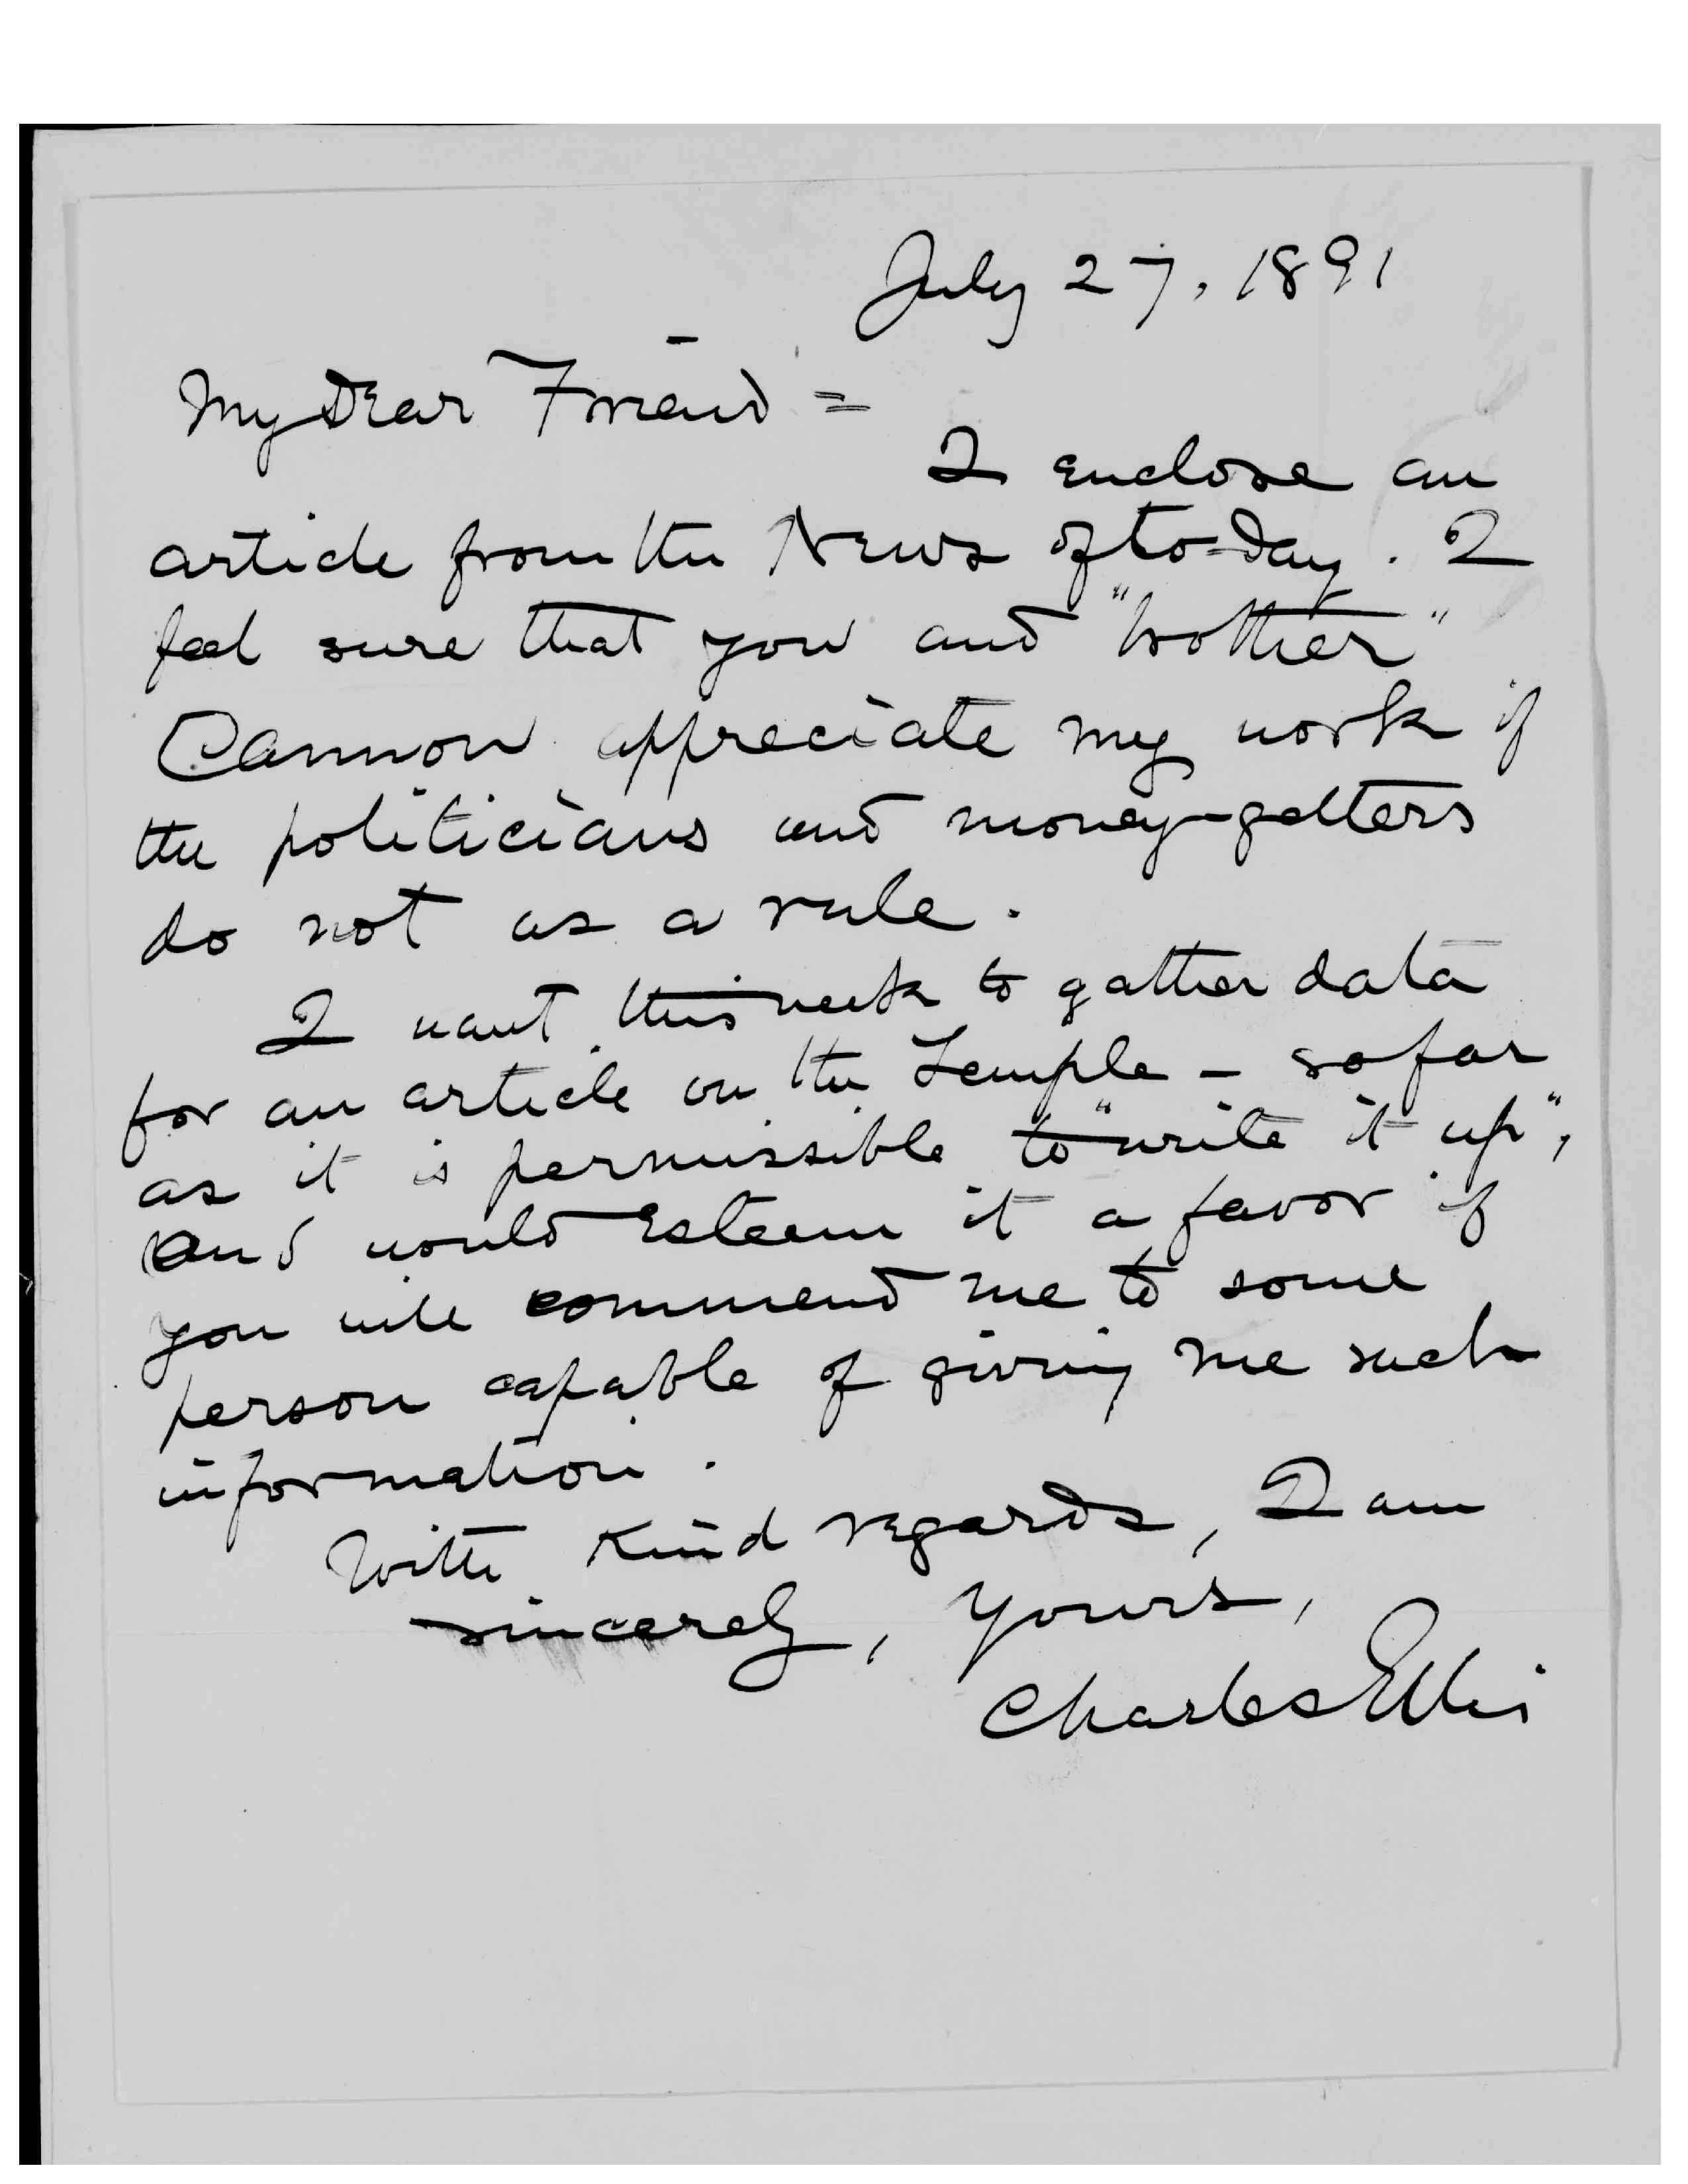 July 27, 1891
My Dear Friend =
I enclose an
article from the News of to-day. I
feel sure that you and "brother"
Cannon appreciate my work if
the politicians and money-getters
do not as a rule.
I want this week to gather data
for an article on the Temple - so far
as it is permissible to "write it up",
and would esteem it a favor if
you will commend me to some
person capable of giving me such
information.
With kind regards, I am
sincerely, yours,
Charles Ellis